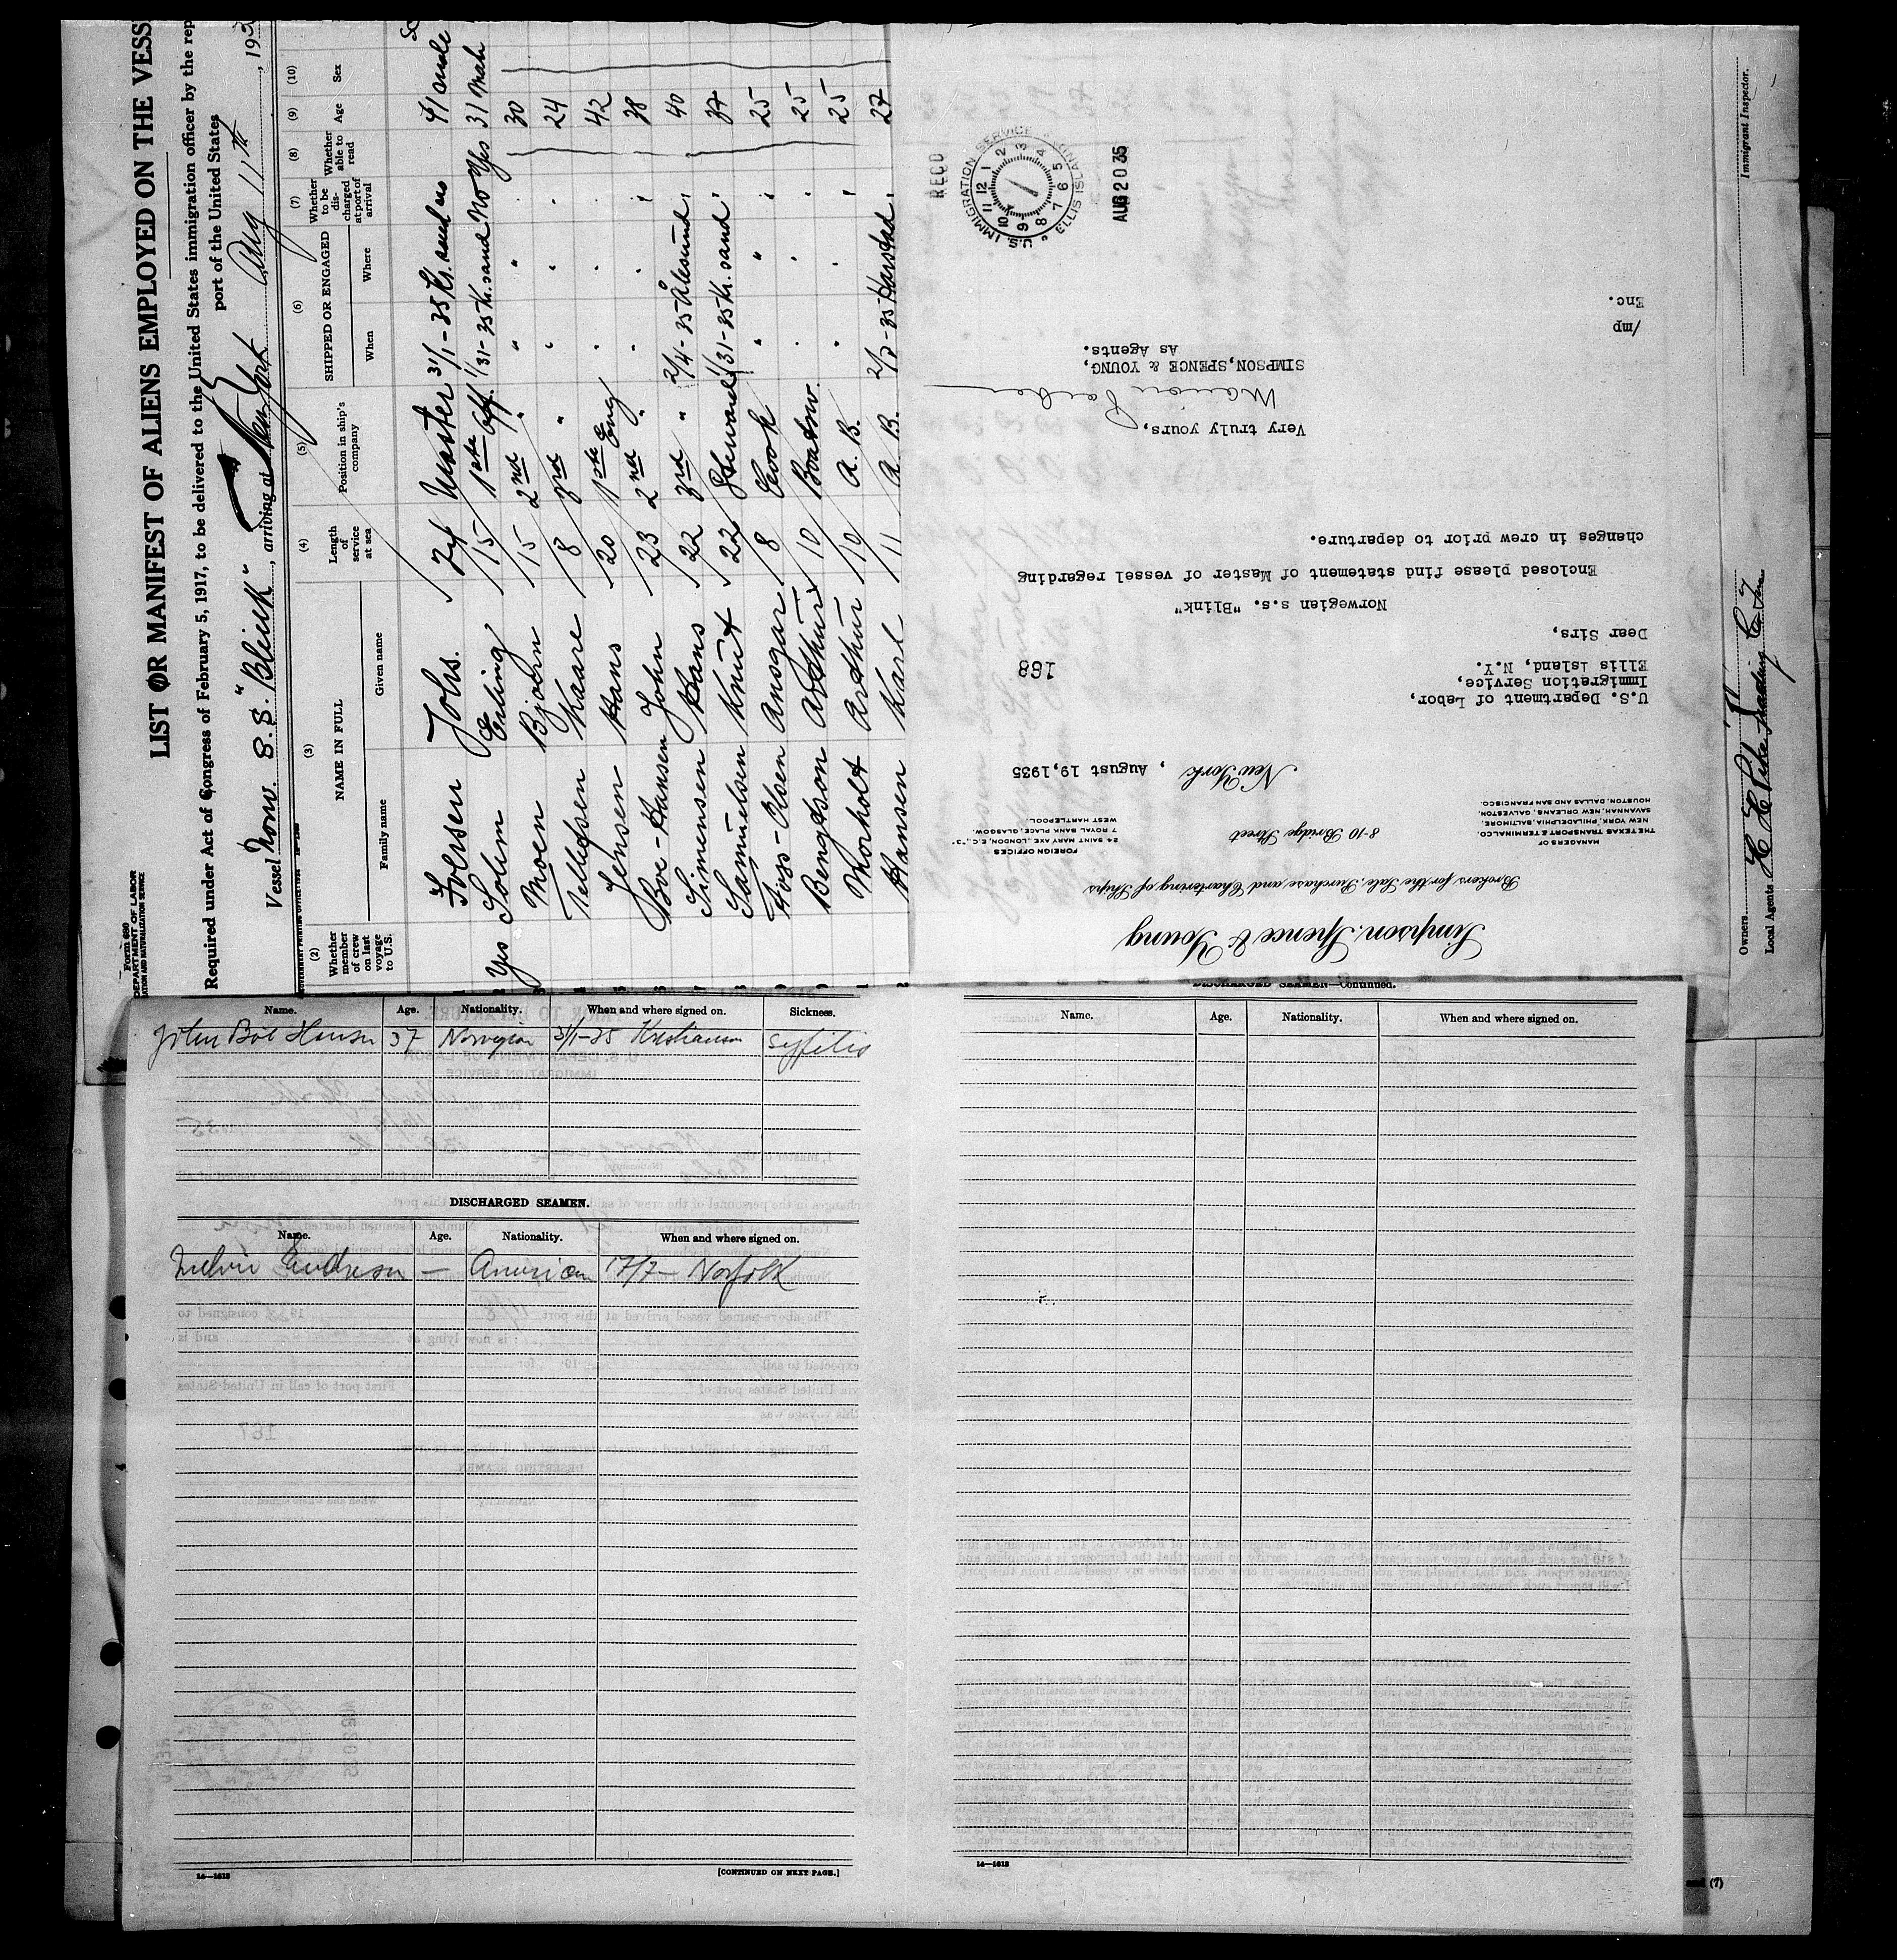 Form 680
DEPARTMENT OF LABOR
LIST OR MANIFEST OF ALIENS EMPLOYED ON THE VESS
Required under Act of Congress of February 5, 1917, to be delivered to the United States immigration officer by the rep
port of the United States
Vessel Norw. S.S. "Blink", arriving at New York Aug 11th, 193
(2) (3) (4) (5) (6) (7) (8) (9) (10)
Whether member of crew on last voyage to U.S.
NAME IN FULL
Family name
Given name
Length of service at sea
Position in ship's company
SHIPPED OR ENGAGED
When
Where
Whether to be discharged at port of arrival
Whether able to read
Age
Sex
Johs. 24 Master 31/1-35 Kr.sand no 41 male
Yes Solim Erling 15 1ste Off. 1/31-35 Kr.sand No Yes 31 Male
Moen Bjoern 15 2nd " " " 30
Tellefsen Kaare 8 3rd " 24
Jensen Hans 20 1ste Eng 42
Boe-Hansen John 23 2nd " 38
Simensen Hans 22 3rd " 2/4-35 Ålesund 40
Samuelsen Knut 22 Steward 1/31-35 Kr.sand 37
Foss-Olsen Ansgar 8 Cook " " 25
Bengtson Arthur 10 Boatsw. 25
Morholt Arthur 10 A.B. 25
Hansen Karl 11 A.B. 35 Harstad 27
Simpson, Spence & Young
Brokers for the Sale, Purchase, and Chartering of Ships
MANAGERS OF
THE TEXAS TRANSPORT & TERMINAL CO.
NEW YORK, PHILADELPHIA, BALTIMORE,
SAVANNAH, NEW ORLEANS, GALVESTON,
HOUSTON, DALLAS AND SAN FRANCISCO.
8-10 Bridge Street
FOREIGN OFFICES
24 SAINT MARY AXE, LONDON, E.C., "3"
7 ROYAL BANK PLACE, GLASGOW.
WEST HARTLEPOOL.
New York, August 19, 1935
U.S. Department of Labor,
Immigration Service,
Ellis Island, N.Y.
168
Dear Sirs,
Norwegian s.s. "Blink"
Enclosed please find statement of Master of vessel regarding
changes in crew prior to departure.
Very truly yours,
SIMPSON,SPENCE & YOUNG,
As Agents.
/mp
Enc.
RECD
U.S. IMMIGRATION SERVICE ELLIS ISLAND
AUG 20 35
Immigrant Inspector.
Owners
Local Agents
Name. Age. Nationality. When and where signed on. Sickness.
John Boe Hansen 37 Norwegian 31/1-35 Kristiansan syfilis
DISCHARGED SEAMEN.
Name. Age. Nationality. When and where signed on.
— American 17/7— Norfolk
16—1613
[CONTINUED ON NEXT PAGE.]
DISCHARGED SEAMEN—Continued.
Name. Age. Nationality. When and where signed on.
16—1613
(7)